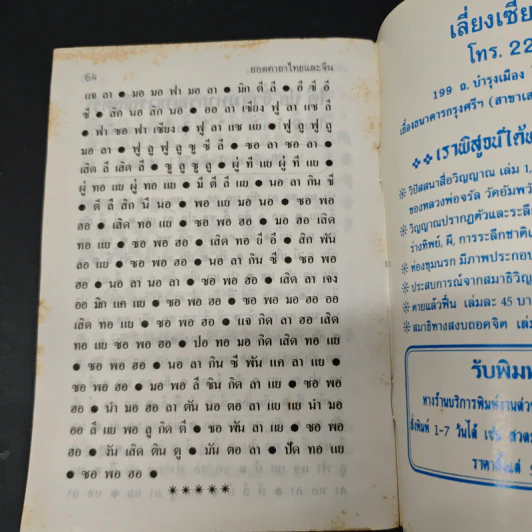 64
ยอดคาถาไทยและจีน
แจ ลา ● มอ มอ ฟา มอ ลา ● มัก ตี ลี ● อี ซี อี
ซี ● สัก นอ สัก นอ ● ออ ลา เซียง ฟู ลา แซ ลี
● ฟา ซอ ฟา เซียง ● ฟู ลา แซ แย ● ฟู ลู ฟู ลู
มอ ลา ● ฟู ลู ฟู ลู ซู ซี ลี ● ซอ ลา ซอ ลา ●
เสิด ลี เสิด ลี ● ซู ลู ซู ลู ● ผู่ ที แย ผู่ ที แย ●
ผู่ ทอ แย ผู่ ทอ แย ● มี ตี ลี แย ● นอ ลา กัน ซี
● ตี ลี สัก นี นอ ● พอ แย มอ นอ ● ซอ พอ
ฮอ ● เสิด ทอ แย ● ซอ พอ ฮอ ● มอ ฮอ เสิด
ทอ แย ● ซอ พอ ฮอ ● เสิด ทอ ยี อี ● สัก พัน
ลอ แย ● ซอ พอ ฮอ ● นอ ลา กัน ซี ● ซอ พอ
ฮอ ● นอ ลา นอ ลา ● ซอ พอ ฮอ ● เสิด ลา เจง
ออ มัก แค แย ● ซอ พอ ฮอ ● ซอ พอ มอ ฮอ ออ
เสิด ทอ แย ● ซอ พอ ฮอ ● แจ กิด ลา ฮอ เสิด
ทอ แย ซอ พอ ฮอ ● ปอ ทอ มอ กิด ทอ แย
● ซอ พอ ฮอ ● นอ ลา กัน ซี พัน แค ลา แย ●
ซอ พอ ฮอ ● มอ พอ ลี ซัน กิด ลา แย ● ซอ พอ
ฮอ ● นำ มอ ฮอ ลา ตัน นอ ตอ ลา แย แย นำ มอ
ออ ลี แย พอ ลู กิด ตี ● ซอ พัน ลา แย ● ซอ พอ
ฮอ ● งัน เสิด ติน ตู ● มัน ตอ ลา ● ปัด ทอ แย
● ซอ พอ ฮอ ●
✳✳✳✳✳
เลี่ยงเซีย
โทร. 22
199 ถ. บำรุงเมือง
เยื้องธนาคารกรุงศรีฯ (สาขาเส
เราพิสูจน์ได้
วิปัสสนาสื่อวิญญาณ เล่ม 1,
ของหลวงพ่อจรัล วัดอัมพวั
วิญญาณปรากฏตัวและระลึก
ร่างทิพย์, ผี, การระลึกชาติ
ท่องขุมนรก มีภาพประกอบ
ประสบการณ์จากสมาธิวิญ
ตายแล้วฟื้น เล่มละ 45 บา
สมาธิทางสงบถอดจิต เล่ม
รับพิมพ
ทางร้านบริการพิมพ์งานด่วน
สั่งพิมพ์ 1-7 วันได้ เช่น สวด
ราคาตั้งแต่